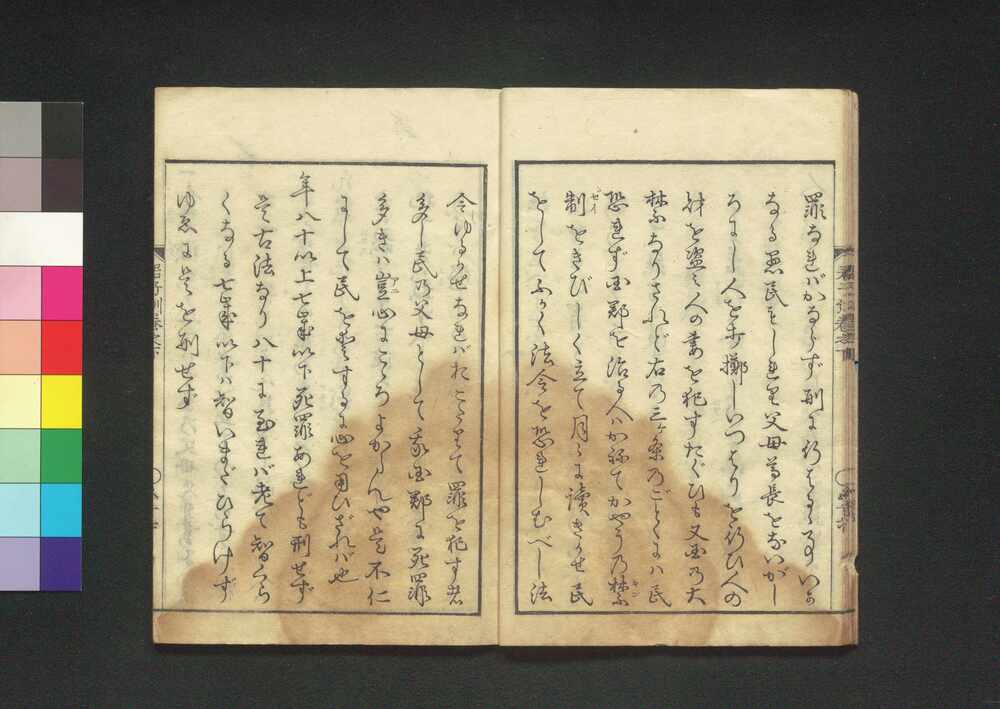 罪なればかならず刑に行はるゝ事いか
なる愚民もしれり父母尊長をないがし
ろにし人を打擲しいつはりを行ひ人の
財を盗み人の妻を犯すたぐひも又国の大
禁なりされど右の三ヶ条のごとくには民
恐れず国郡を治る人はかねてかやうの禁
制をきびしく立て月々に読きかせ民
をしてふかく法令を恐れしむべし法
令ゆるかせなればおこたりて罪を犯す者
多し民の父母として我国郡に死罪
多きは豈心にこゝろよからんや是不仁
にして民を愛するに心を用ひざれば也
年八十以上七歳以下死罪あれども刑せず
是古法なり八十に至れば老て智くら
くなる七歳以下は智いまだひらけず
ゆゑに是を刑せず